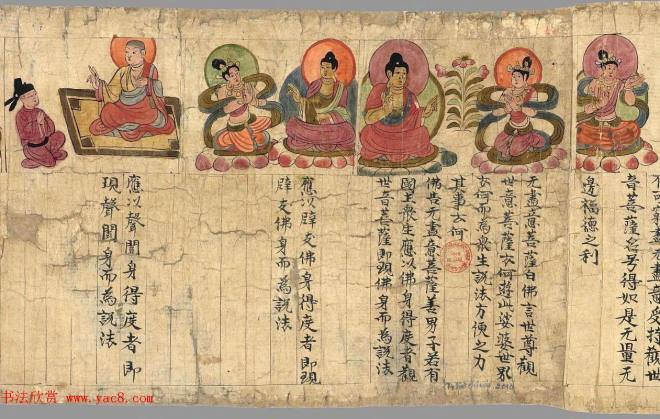 盡无盡意受持觀世
音菩薩名号得如是无量无
邊福德之利
无盡意菩薩白佛言世尊觀
世音菩薩云何遊此娑婆世界
云何而為衆生說法方便之力
其事云何
佛告无盡意菩薩善男子若有
國土衆生應以佛身得度者觀
世音菩薩即現佛身而為說法
應以辟支佛身得度者即現
辟支佛身而為說法
應以聲聞身得度者即
現聲聞身而為說法
书法欣赏 www.yac8.com